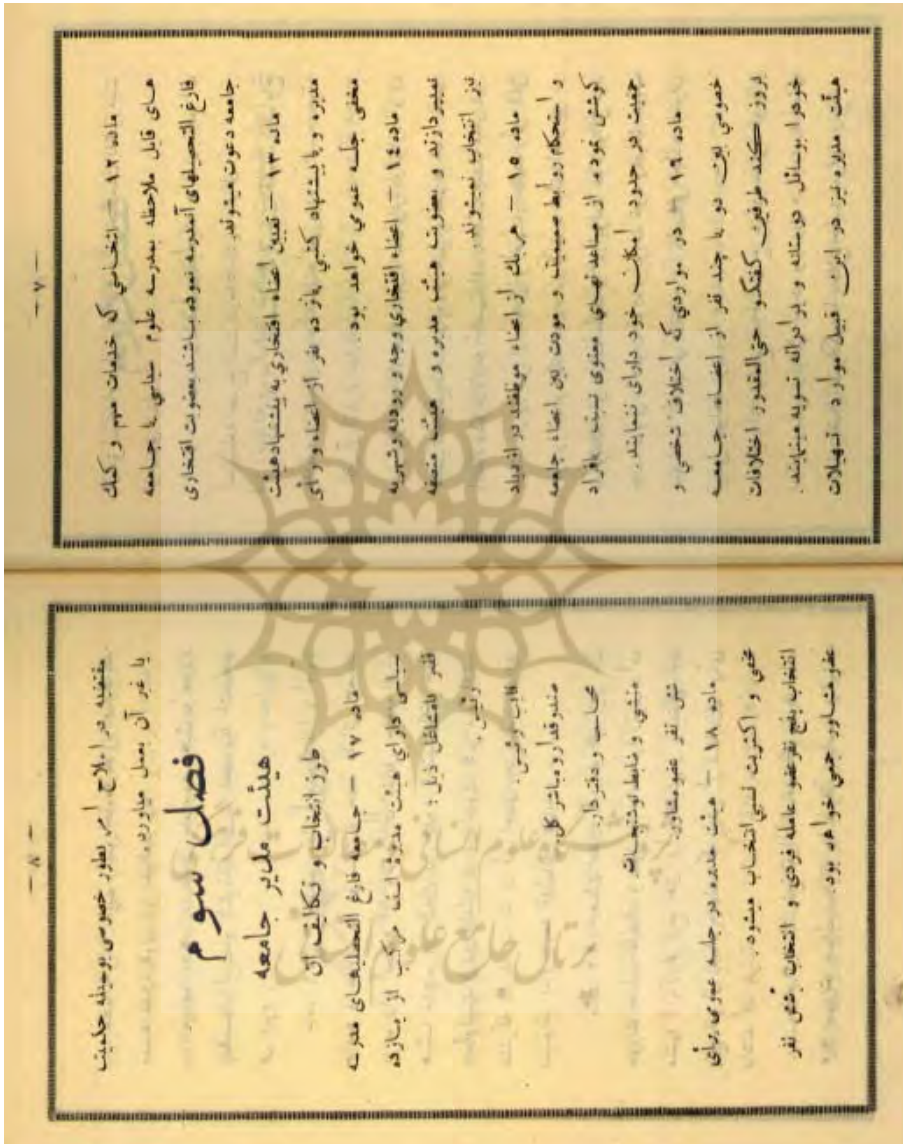 — ۷ —
ماده ۱۲ — اشخاصی که خدمات مهم و کمک
های قابل ملاحظه بمدرسه علوم سیاسی یا جامعه
فارغ التحصیلهای آنمدرسه نموده باشند بعضویت افتخاری
جامعه دعوت میشوند.
ماده ۱۳ — تعیین اعضاء افتخاری به پیشنهاد هیئت
مدیره و یا پیشنهاد کتبی یازده نفر از اعضاء و رأی
مخفی جلسه عمومی خواهد بود.
ماده ۱٤ — اعضاء افتخاری وجه ورودیه وشهریه
نمیپردازند و بعضویت هیئت مدیره و هیئت منصفه
نیز انتخاب نمیشوند.
ماده ۱۵ — هر یك از اعضاء موظفند در ازدیاد
و استحکام روابط صمیمیت و مودت بین اعضاء جامعه
کوشش نموده از مساعدتهای معنوی نسبت بافراد
جمعیت در حدود امکان خود دارای ننمایند.
ماده ۱۶ — در مواردی که اختلاف شخصی و
خصوصی بین دو یا چند نفر از اعضاء جامعه
بروز کند طرفین کفتگو حتی‌المقدور اختلافات
خودرا بوسائل دوستانه و برادرانه تسویه مینمایند.
هیئت مدیره نیز در این قبیل موارد تسهیلات
— ۸ —
مقتضیه در اصلاح امر بطور خصوصی بوسیله حکمیت
یا غیر آن بعمل میاورد.
فصل سوم
هیئت مدیر جامعه
طرز انتخاب و تکالیف آن
ماده ۱۷ — جامعه فارغ التحصیلهای مدرسه
سیاسی دارای هیئت مدیرۀ است مرکب از یازده
نفر بامشاغل ذیل:
رئیس.
نائب رئیس.
صندوقدار ومباشر کل.
محاسب و دفتردار.
منشی و ضابط نوشتجات.
شش نفر عضو مشاور.
ماده ۱۸ — هیئت مدیره در جلسه عمومی برأی
مخفی و اکثریت نسبی انتخاب میشود.
انتخاب پنج نفر عضو عامله فردی و انتخاب شش نفر
عضو مشاور جمعی خواهد بود.
پژوهشگاه علوم انسانی و مطالعات فرهنگی
پرتال جامع علوم انسانی